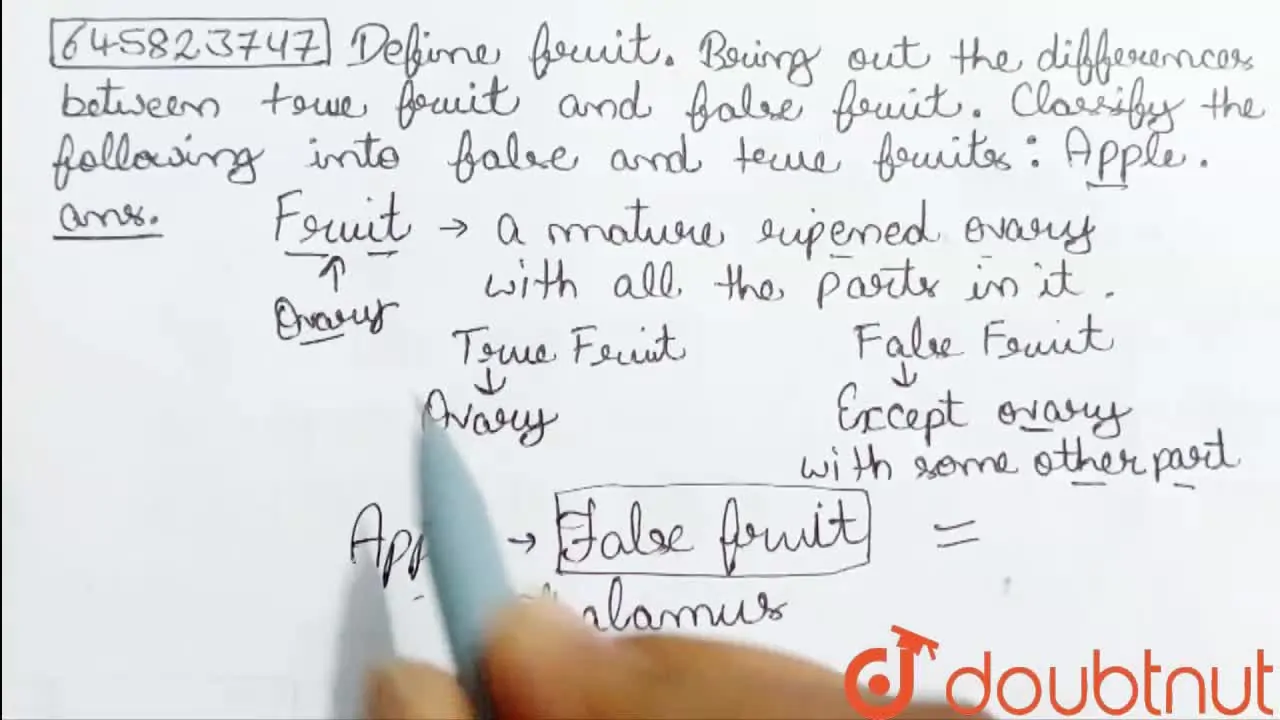 645823747 Define fruit. Bring out the differences
between true fruit and false fruit. Classify the
following into false and true fruits: Apple.
ans. Fruit → a mature ripened ovary
with all the parts in it.
↑
Ovary
True Fruit False Fruit
↓ ↓
Ovary Except ovary
with some other part
→ False fruit =
doubtnut